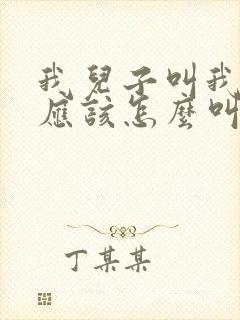 我兒子叫我
應該怎麼叫
丁某某